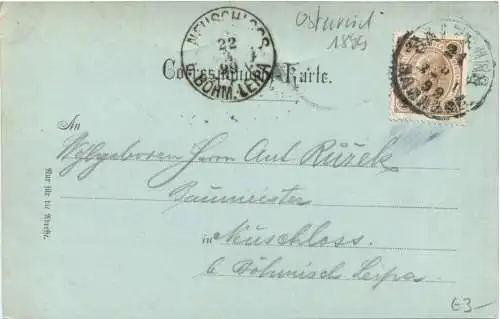 NEUSCHLOSS
22
99
B. BÖHM. LEIPA
Österreich
1899
Correspondenz-Karte.
An
Wohlgeboren Herrn Ant. Růžek
Baumeister
in Neuschloss.
b. Böhmisch Leipa.
Nur für die Adresse.
E3-